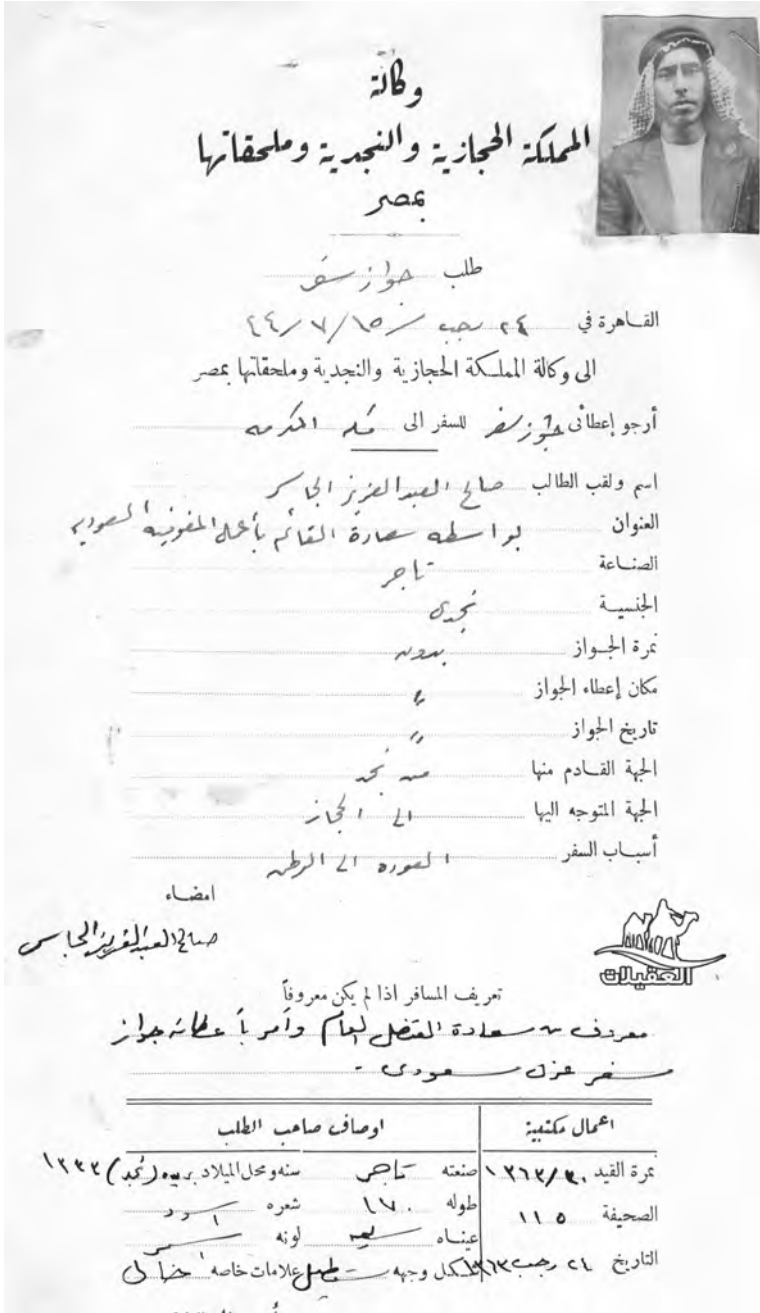 وكالة
المملكة الحجازية والنجدية وملحقاتها
بمصر
طلب جواز سفر
القاهرة في ٢٤ رجب / ١٥ / ٧ / ٤٤
الى وكالة المملكة الحجازية والنجدية وملحقاتها بمصر
أرجو إعطائى جواز سفر للسفر الى مكه المكرمه
اسم ولقب الطالب صالح العبدالعزيز الجاسر
العنوان بواسطه سعادة القائم بأعمال المفوضيه السعوديه
الصناعة تاجر
الجنسية نجدى
نمرة الجواز بدون
مكان إعطاء الجواز "
تاريخ الجواز "
الجهة القادم منها من نجد
الجهة المتوجه اليها الى الحجاز
أسباب السفر العوده الى الوطن
امضاء
صالح العبدالعزيز الجاسر
العقيلات
تعريف المسافر اذا لم يكن معروفاً
معروف من سعادة القنصل العام وأمر بأعطائه جواز
سفر سعودى -
اعمال مكتبية اوصاف صاحب الطلب
نمرة القيد ٣٠/١٣٦٣ صنعته تاجر سنه ومحل الميلاد بريده (نجد) ١٣٣٣
الصحيفة ١١٥ طوله ١٧٠ شعره اسود
عيناه لونه اسمر
التاريخ ٢٤ رجب ١٣٦٣ شكل وجهه مستطيل علامات خاصه خالى